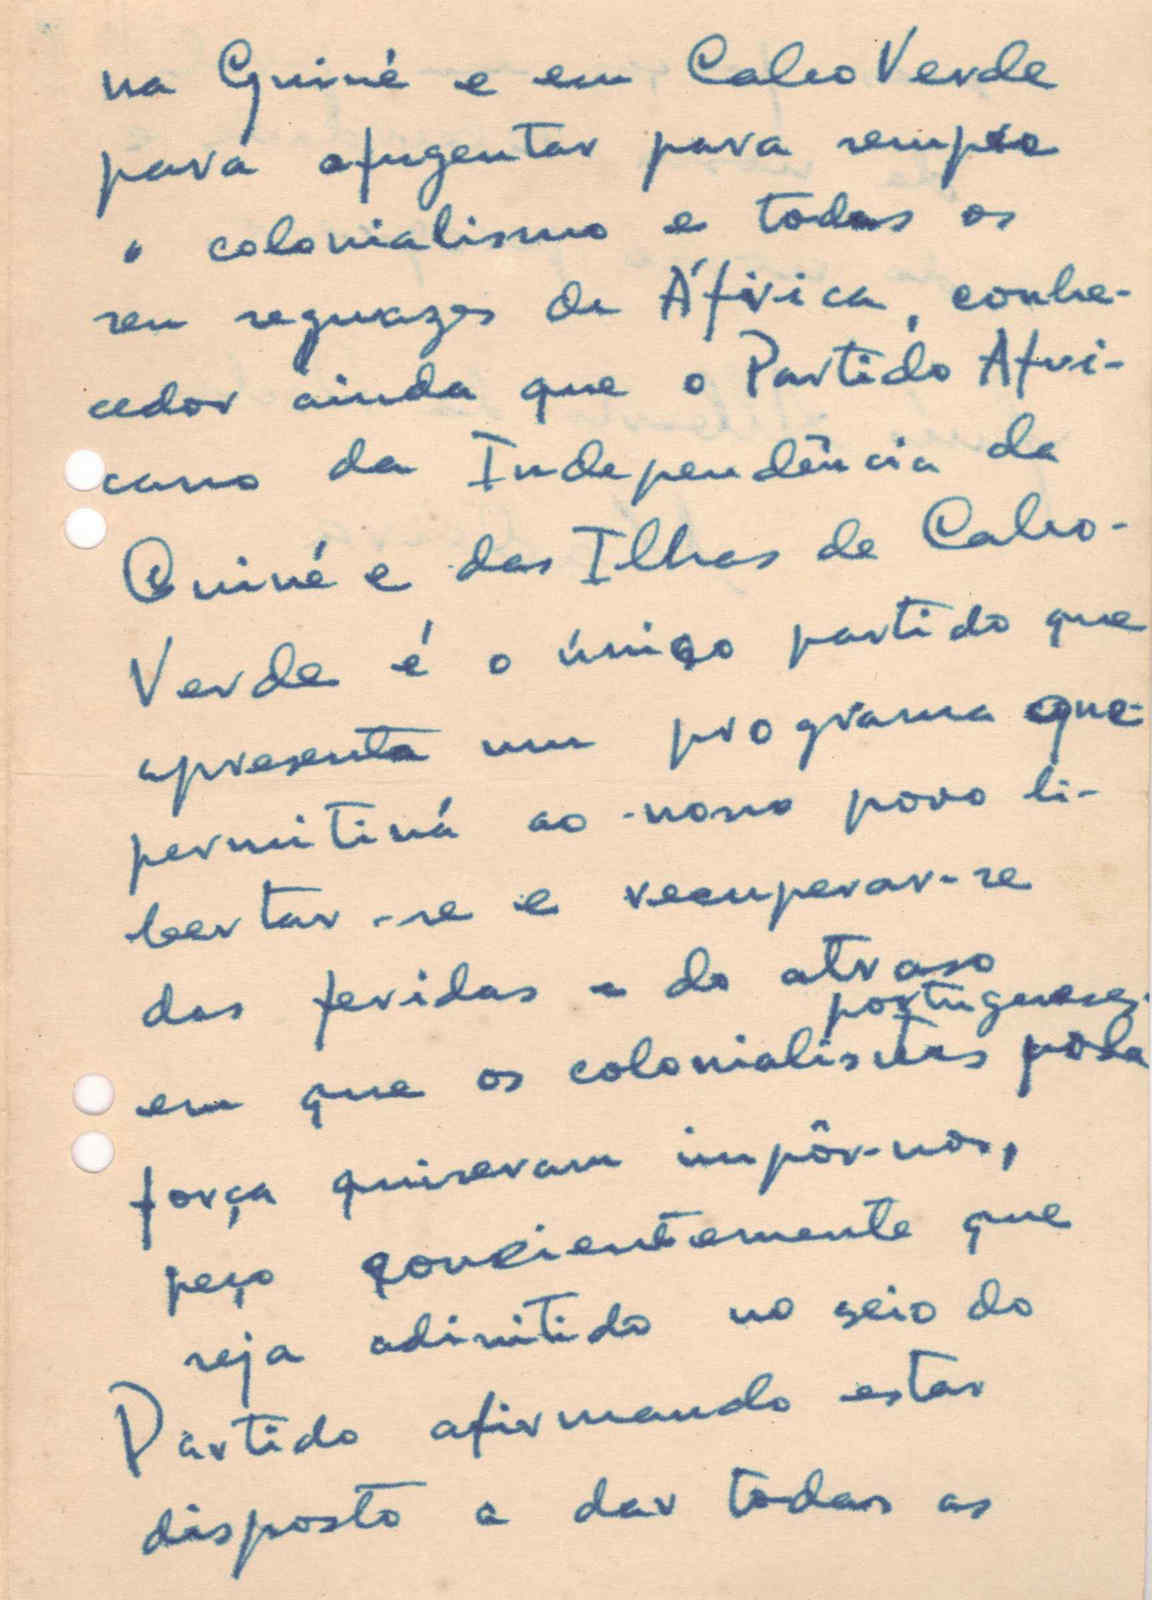 na Guiné e em Cabo Verde
para afugentar para sempre
o colonialismo e todos os
seu sequazes de África, conhe-
cedor ainda que o Partido Afri-
cano da Independência da
Guiné e das Ilhas de Cabo-
Verde é o único partido que
apresenta um programa que
permitirá ao nosso povo li-
bertar-se e recuperar-se
das feridas e do atraso
portugueses
em que os colonialistas pela
força quiseram impôr-nos,
peço concientemente que
seja adimitido no seio do
Partido afirmando estar
disposto a dar todas as